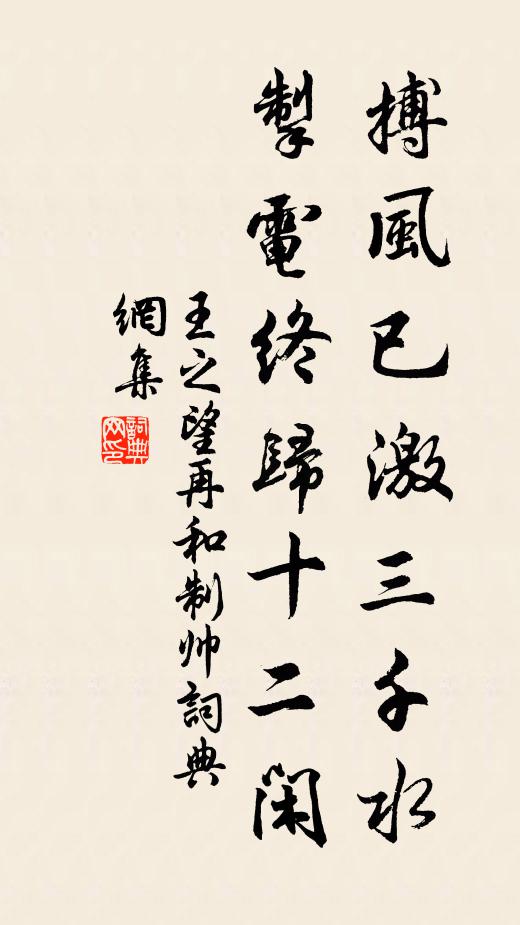 搏風已激三千水
掣電終歸十二閑
王之望再和制帅詞典
網集
詞典
网印